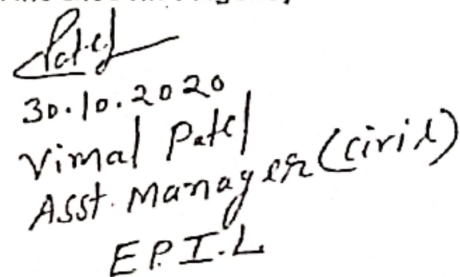 Patel
30.10.2020
Vimal Patel
Asst. Manager (civil)
E.P.I.L